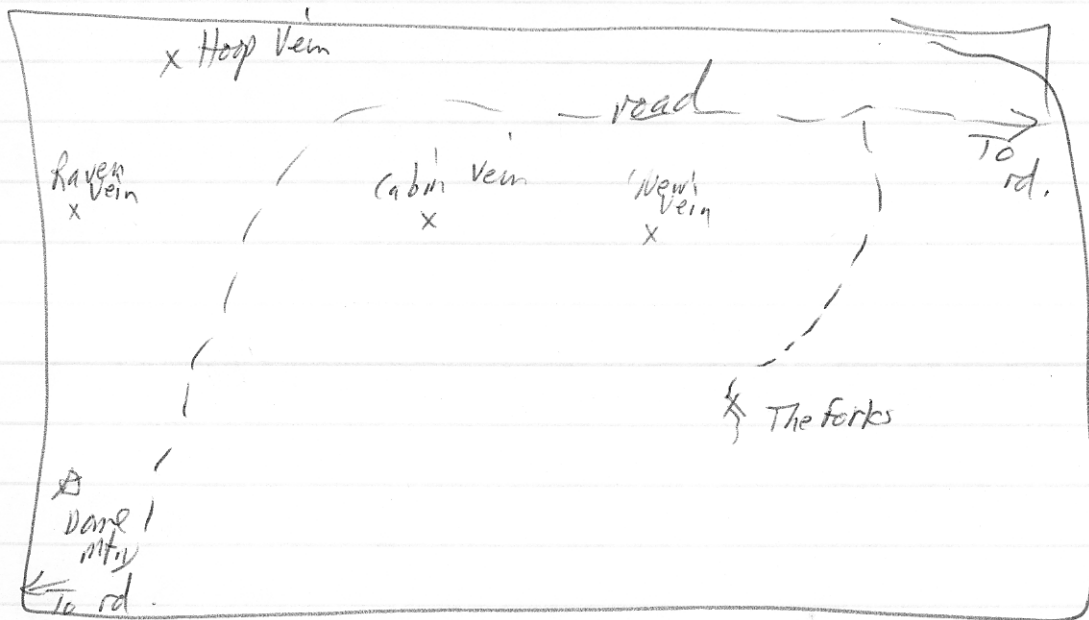 x Hoop Vein
road
To
rd.
Raven
Vein
x
Cabin Vein
x
'New'
Vein
x
x The Forks
mtn
To rd.